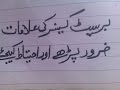 بریسٹ کینسر کی علامات
ضرور پڑھے اور احتیاط کیجئے